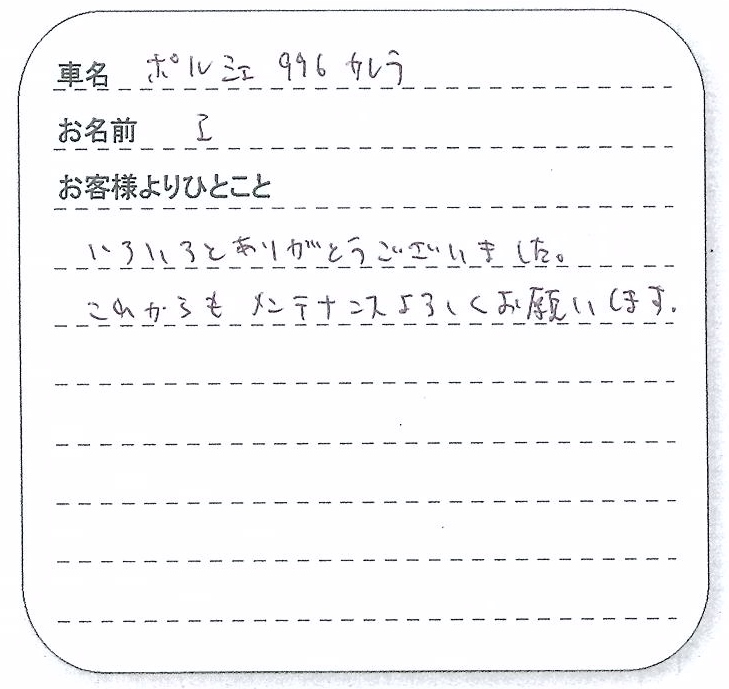 車名 ポルシェ 996 カレラ
お名前 I
お客様よりひとこと
いろいろとありがとうございました。
これからもメンテナンスよろしくお願いします.